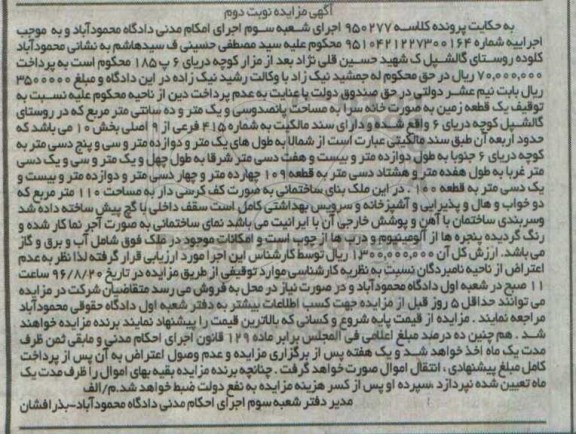 آگهی مزایده نوبت دوم
به حکایت پرونده کلاسه ۹۵۰۲۷۷ اجرای شعبه سوم اجرای احکام مدنی دادگاه محمودآباد و به موجب
اجراییه شماره ۹۵۱۰۴۲۱۲۲۷۳۰۰۱۶۴ محکوم علیه سید مصطفی حسینی ف سیدهاشم به نشانی محمودآباد
کلوده روستای گالشپل ک شهید حسین قلی نژاد بعد از مزار کوچه دریای ۶ پ ۱۸۵ محکوم است به پرداخت
۷۰,۰۰۰,۰۰۰ ریال در حق محکوم له جمشید نیک زاد با وکالت رشید نیک زاده در این دادگاه و مبلغ ۳۵۰۰۰۰۰
ریال بابت نیم عشر دولتی در حق صندوق دولت با عنایت به عدم پرداخت دین از ناحیه محکوم علیه نسبت به
توقیف یک قطعه زمین به صورت خانه سرا به مساحت پانصدوسی و یک متر و ده سانتی متر مربع که در روستای
گالشپل کوچه دریای ۶ واقع شده و دارای سند مالکیت به شماره ۴۱۵ فرعی از ۹ اصلی بخش ۱۰ می باشد که
حدود اربعه آن طبق سند مالکیتی عبارت است از شمالاً به طول های یک متر و دوازده متر و سی و پنج دسی متر به
کوچه دریای ۶ جنوبا به طول دوازده متر و بیست و هفت دسی متر شرقا به طول چهل و یک متر و سی و یک دسی
متر غربا به طول هفده متر و هشتاد دسی متر به قطعه ۱۰۹ چهارده متر و چهار دسی متر و دوازده متر و بیست و
یک دسی متر به قطعه ۱۰۰ . در این ملک بنای ساختمانی به صورت کف کرسی دار به مساحت ۱۱۰ متر مربع که
دو خواب و هال و پذیرایی و آشپزخانه و سرویس بهداشتی کامل است سقف داخلی با گچ پیش ساخته داده شد
وسربندی ساختمان با آهن و پوشش خارجی آن با ایرانیت می باشد نمای ساختمانی به صورت آجر نما کار شده و
رنگ گردیده پنجره ها از آلومینیوم و درب ها از چوب است و امکانات موجود در ملک فوق شامل آب و برق و گاز
می باشد. ارزش کل آن ۱,۳۰۰,۰۰۰,۰۰۰ ریال توسط کارشناس این اجرا مورد ارزیابی قرار گرفته لذا نظر به عدم
اعتراض از ناحیه نامبردگان نسبت به نظریه کارشناسی موارد توقیفی از طریق مزایده در تاریخ ۹۶/۸/۲۰ ساعت
۱۱ صبح در شعبه اول دادگاه محمودآباد و در صورت نیاز در محل به فروش می رسد متقاضیان شرکت در مزایده
می توانند حداقل ۵ روز قبل از مزایده جهت کسب اطلاعات بیشتر به دفتر شعبه اول دادگاه حقوقی محمودآباد
مراجعه نمایند . مزایده از قیمت پایه شروع و کسانی که بالاترین قیمت را پیشنهاد نمایند برنده مزایده خواهند
شد . هم چنین ده درصد مبلغ اعلامی فی المجلس برابر ماده ۱۲۹ قانون اجرای احکام مدنی و مابقی ثمن ظرف
مدت یک ماه اخذ خواهد شد و یک هفته پس از برگزاری مزایده و عدم وصول اعتراض به آن پس از پرداخت
کامل مبلغ پیشنهادی ، انتقال اموال صورت خواهد گرفت . چنانچه برنده مزایده بقیه بهای اموال را ظرف مدت یک
ماه تعیین شده نپردازد ،سپرده او پس از کسر هزینه مزایده به نفع دولت ضبط خواهد شد.م/الف
مدیر دفتر شعبه سوم اجرای احکام مدنی دادگاه محمودآباد-بذرافشان